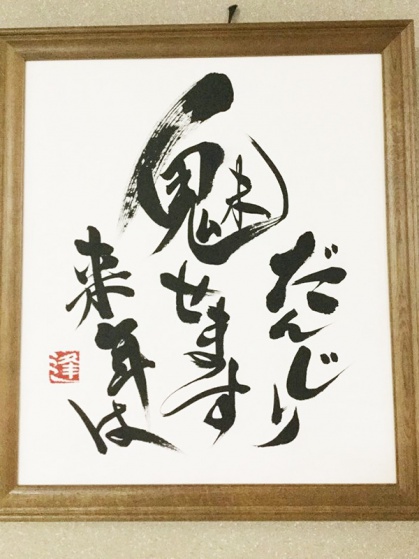 だんじり
魅せます
来年は
逢